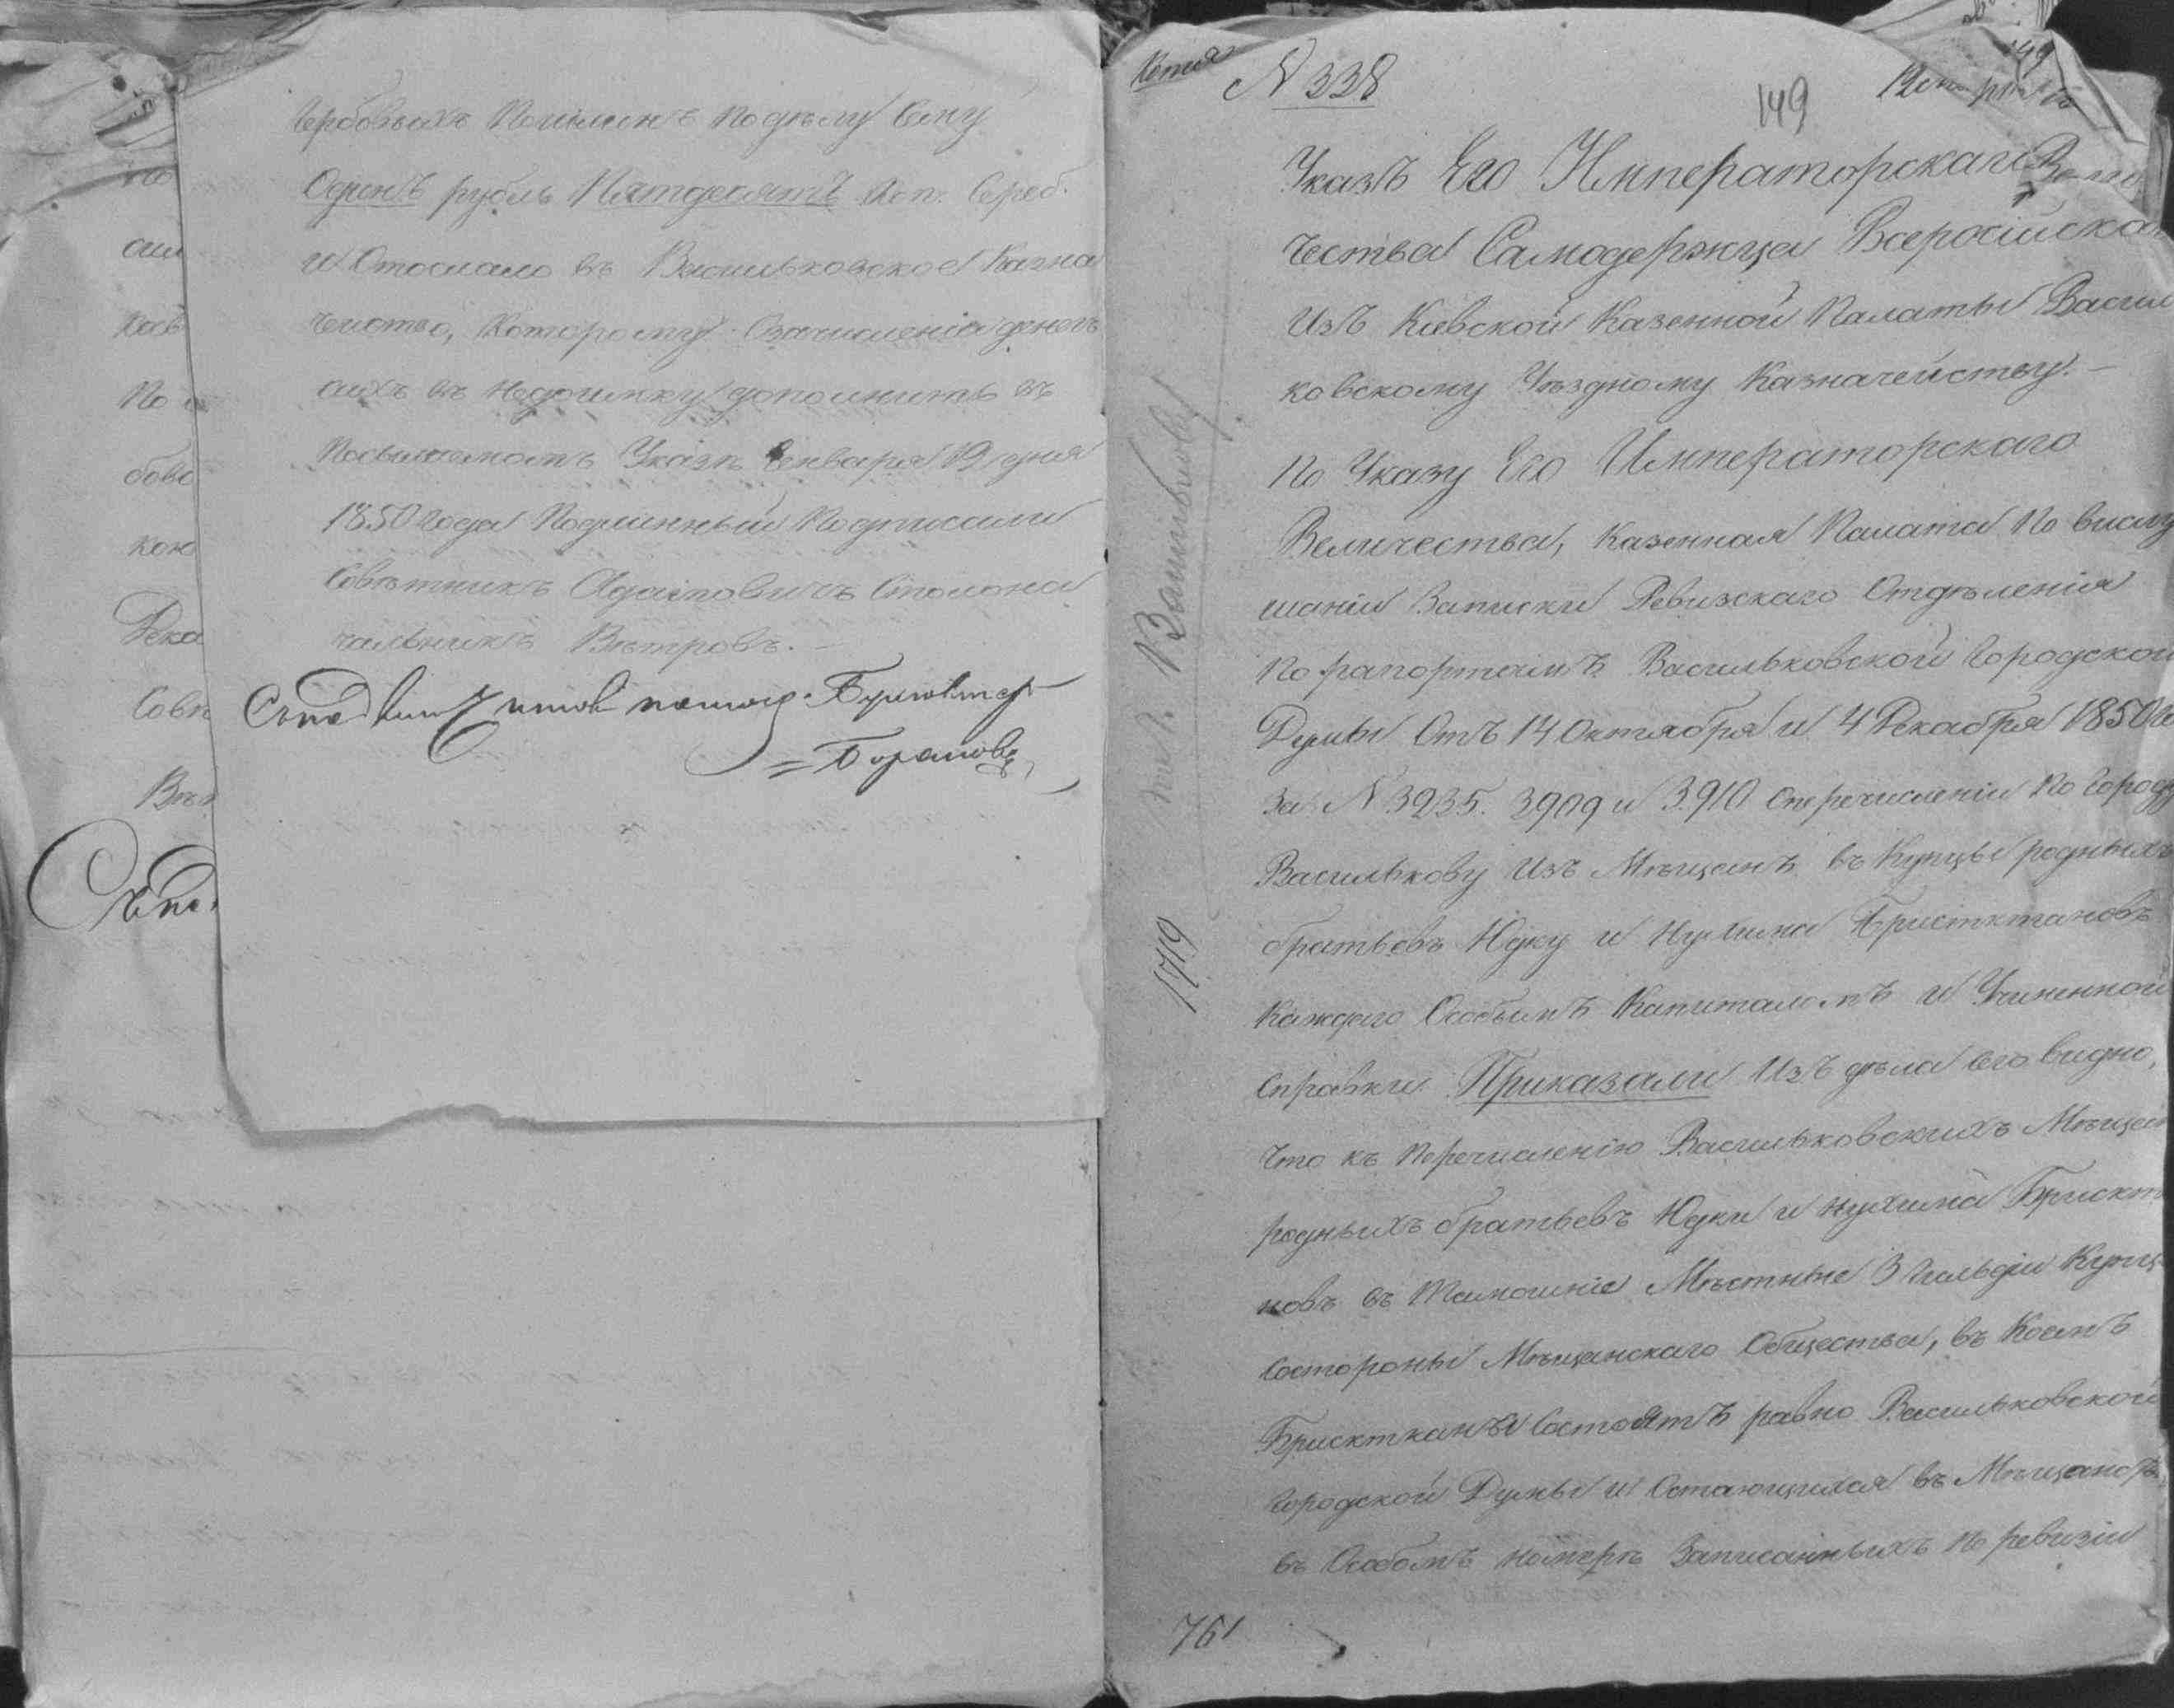 Гербовыхъ Пошлинъ по дѣлу Сему
Одинъ рубль Пятдесятъ Коп. Сереб.
и Отослало въ Васильковское Казна
чейство, Которому Озачисленіи денегъ
сихъ въ недоимку дополнить въ
Посылаемомъ Указѣ Генваря 19 дня
1850 года Подлинный Подписали
Совѣтникъ Столона
чальникъ Вѣтровъ. —
Съ
по
сии
По
бовс
кою
Дека
Совѣ
Вѣт
Копия
N 338
149
Указъ Его Императорскаго Вели
чества Самодержца Всеросійска
Изъ Кіевской Казенной Палаты Васил
ковскому Уѣздному Казначейству. —
По Указу Его Императорскаго
Величества, Казенная Палата По выслу
шаніи Записки Ревизскаго Отдѣленія
По рапортамъ Васильковской Городской
Думы Отъ 14 Октября и 4 Декабря 1850 го
За N 3235. 3909 и 3910 Оперечисленіи По Городу
Василькову Изъ Мѣщанъ въ Купцы родныхъ
братьевъ Юдку и Нухима Бристкмановъ
Каждаго Особымъ Капиталомъ и Учиненной
Справки. Приказали Изъ дѣла Сего видно,
Что къ Перечисленію Васильковскихъ Мѣщан
родныхъ братьевъ Юдки и Нухима Брискт
новъ въ Тамошніе Мѣстные 3 Гильдіи Купц
Состороны Мѣщанскаго Общества, въ Коемъ
Брисктманы Состоятъ равно Васильковской
Городской Думы и Остающихся въ Мѣщанствѣ
въ Особомъ номерѣ Записанныхъ По ревизіи
1719
761